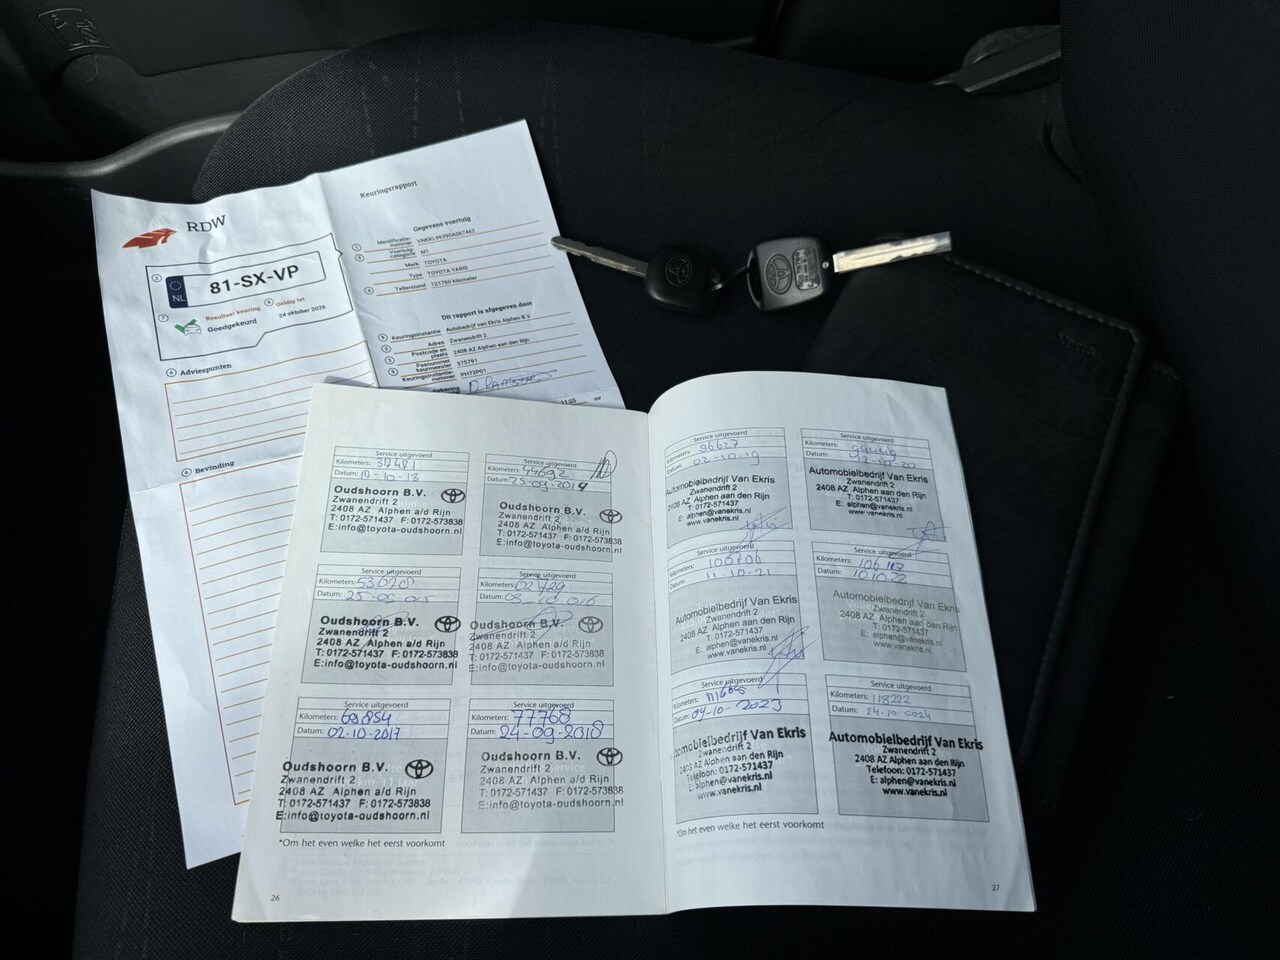 RDW
NL
81-SX-VP
Resultaat keuring
Goedgekeurd
Geldig tot
24 oktober 2026
Adviespunten
Bevinding
Keuringsrapport
Gegevens voertuig
Identificatie-
nummer
Voertuig-
categorie M1
Merk TOYOTA
Type TOYOTA YARIS
Tellerstand 121760 kilometer
Dit rapport is afgegeven door
Keuringsinstantie Autobedrijf Van Ekris Alphen B.V.
Adres Zwanendrift 2
Postcode en
plaats 2408 AZ Alphen aan den Rijn
Pasnummer
keurmeester 375791
Keuringsinstantie-
nummer
Service uitgevoerd
Kilometers:
Datum:
Oudshoorn B.V.
Zwanendrift 2
2408 AZ Alphen a/d Rijn
T: 0172-571437 F: 0172-573838
E:info@toyota-oudshoorn.nl
Service uitgevoerd
Kilometers: 44692
Datum: 25-09-2014
Oudshoorn B.V.
Zwanendrift 2
2408 AZ Alphen a/d Rijn
T: 0172-571437 F: 0172-573838
E:info@toyota-oudshoorn.nl
Service uitgevoerd
Kilometers:
Datum:
Oudshoorn B.V.
Zwanendrift 2
2408 AZ Alphen a/d Rijn
T: 0172-571437 F: 0172-573838
E:info@toyota-oudshoorn.nl
Service uitgevoerd
Kilometers:
Datum:
Oudshoorn B.V.
Zwanendrift 2
2408 AZ Alphen a/d Rijn
T: 0172-571437 F: 0172-573838
E:info@toyota-oudshoorn.nl
Service uitgevoerd
Kilometers: 68854
Datum: 02-10-2017
Oudshoorn B.V.
Zwanendrift 2
2408 AZ Alphen a/d Rijn
T: 0172-571437 F: 0172-573838
E:info@toyota-oudshoorn.nl
Service uitgevoerd
Kilometers: 77768
Datum: 24-09-2018
Oudshoorn B.V.
Zwanendrift 2
2408 AZ Alphen a/d Rijn
T: 0172-571437 F: 0172-573838
E:info@toyota-oudshoorn.nl
*Om het even welke het eerst voorkomt
26
Service uitgevoerd
Kilometers: 96627
Datum: 02-10-19
Automobielbedrijf Van Ekris
Zwanendrift 2
2408 AZ Alphen aan den Rijn
T: 0172-571437
E: alphen@vanekris.nl
www.vanekris.nl
Service uitgevoerd
Kilometers:
Datum:
Automobielbedrijf Van Ekris
Zwanendrift 2
2408 AZ Alphen aan den Rijn
T: 0172-571437
E: alphen@vanekris.nl
www.vanekris.nl
Service uitgevoerd
Kilometers: 106706
Datum: 11-10-21
Automobielbedrijf Van Ekris
Zwanendrift 2
2408 AZ Alphen aan den Rijn
T: 0172-571437
E: alphen@vanekris.nl
www.vanekris.nl
Service uitgevoerd
Kilometers:
Datum: 10.10.22
Automobielbedrijf Van Ekris
Zwanendrift 2
2408 AZ Alphen aan den Rijn
T: 0172-571437
E: alphen@vanekris.nl
www.vanekris.nl
Service uitgevoerd
Kilometers:
Datum: 04-10-2023
Automobielbedrijf Van Ekris
Zwanendrift 2
2408 AZ Alphen aan den Rijn
Telefoon: 0172-571437
E: alphen@vanekris.nl
www.vanekris.nl
Service uitgevoerd
Kilometers: 118222
Datum: 24-10-2024
Automobielbedrijf Van Ekris
Zwanendrift 2
2408 AZ Alphen aan den Rijn
Telefoon: 0172-571437
E: alphen@vanekris.nl
www.vanekris.nl
*Om het even welke het eerst voorkomt
27